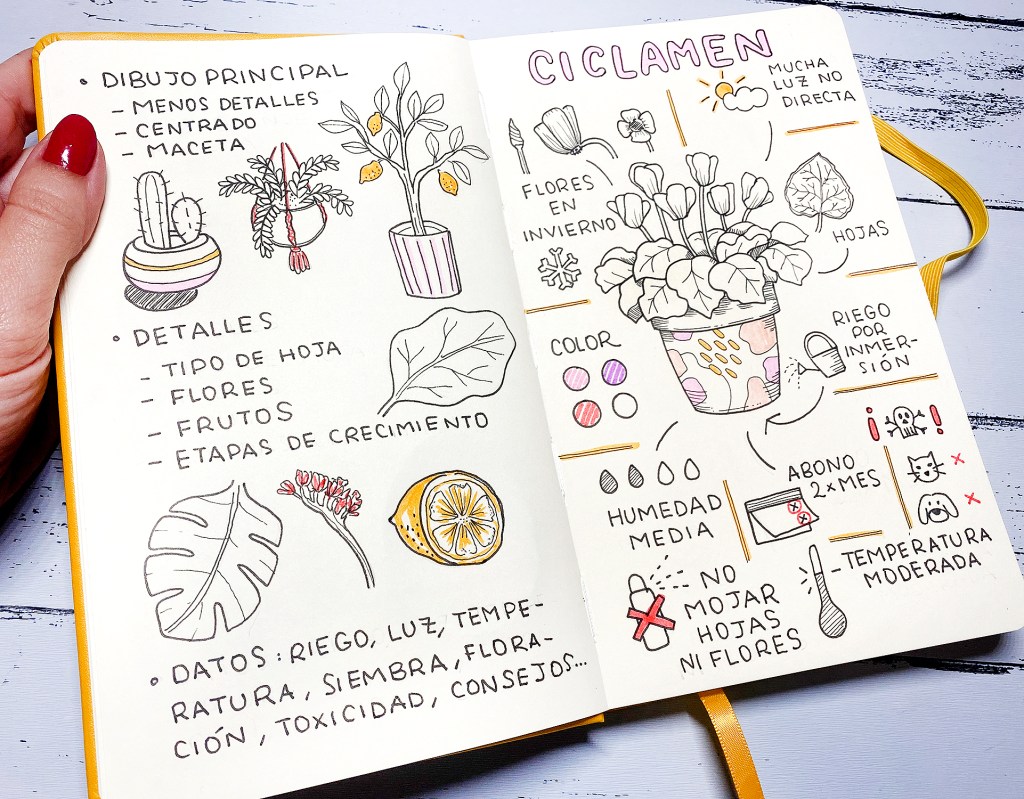 • DIBUJO PRINCIPAL
- MENOS DETALLES
- CENTRADO
- MACETA
• DETALLES
- TIPO DE HOJA
- FLORES
- FRUTOS
- ETAPAS DE CRECIMIENTO
• DATOS: RIEGO, LUZ, TEMPE-
RATURA, SIEMBRA, FLORA-
CIÓN, TOXICIDAD, CONSEJOS...
CICLAMEN
MUCHA
LUZ NO
DIRECTA
FLORES
EN
INVIERNO
HOJAS
COLOR
RIEGO
POR
INMER-
SIÓN
¡ !
HUMEDAD
MEDIA
ABONO
2×MES
NO
MOJAR
HOJAS
NI FLORES
TEMPERATURA
MODERADA